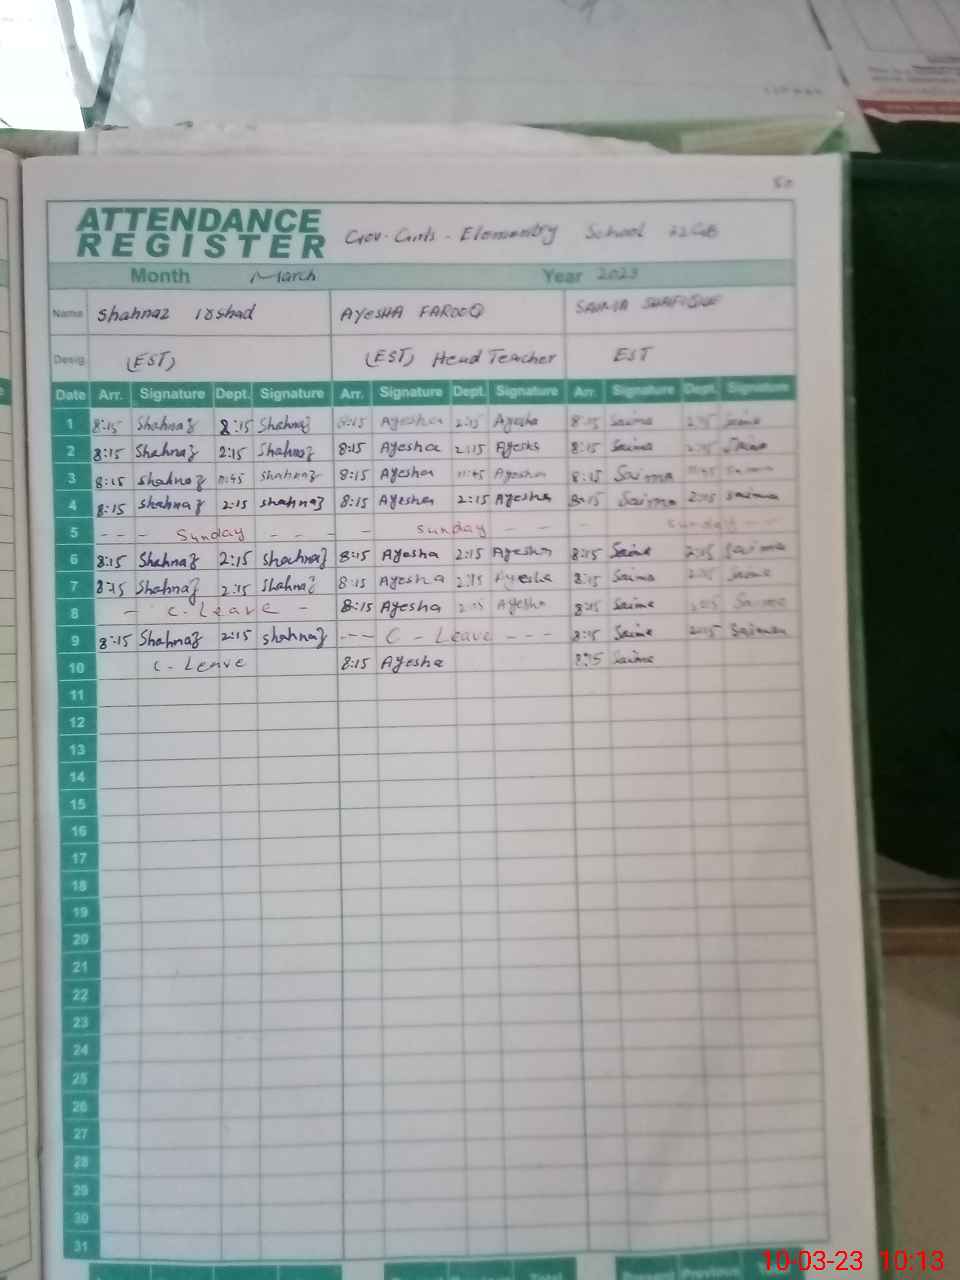 50
ATTENDANCE
REGISTER
Gov. Girls - Elementry School 32GB
Month March Year 2023
Name Shahnaz Irshad AYESHA FAROOQ SAIMA SHAFIQUE
Desig. (EST) (EST) Head Teacher EST
Date Arr. Signature Dept. Signature Arr. Signature Dept. Signature Arr. Signature Dept. Signature
1 8:15 Shahnaz 8:15 Shahnaz 8:15 Ayesha 2:15 Ayesha 8:15 Saima 2:15 Saima
2 8:15 Shahnaz 2:15 Shahnaz 8:15 Ayesha 2:15 Ayesha 8:15 Saima 2:15 Saima
3 8:15 Shahnaz 11:45 Shahnaz 8:15 Ayesha 11:45 Ayesha 8:15 Saima 11:45 Saima
4 8:15 Shahnaz 2:15 Shahnaz 8:15 Ayesha 2:15 Ayesha 8:15 Saima 2:15 Saima
5 - - - Sunday - - - - Sunday - - - Sunday - -
6 8:15 Shahnaz 2:15 Shahnaz 8:15 Ayesha 2:15 Ayesha 8:15 Saima 2:15 Saima
7 8:15 Shahnaz 2:15 Shahnaz 8:15 Ayesha 2:15 Ayesha 8:15 Saima 2:15 Saima
8 - C. Leave - 8:15 Ayesha 2:15 Ayesha 8:15 Saima 2:15 Saima
9 8:15 Shahnaz 2:15 Shahnaz --- C - Leave --- 8:15 Saima 2:15 Saima
10 C - Leave 8:15 Ayesha 8:15 Saima
11
12
13
14
15
16
17
18
19
20
21
22
23
24
25
26
27
28
29
30
31
10-03-23 10:13